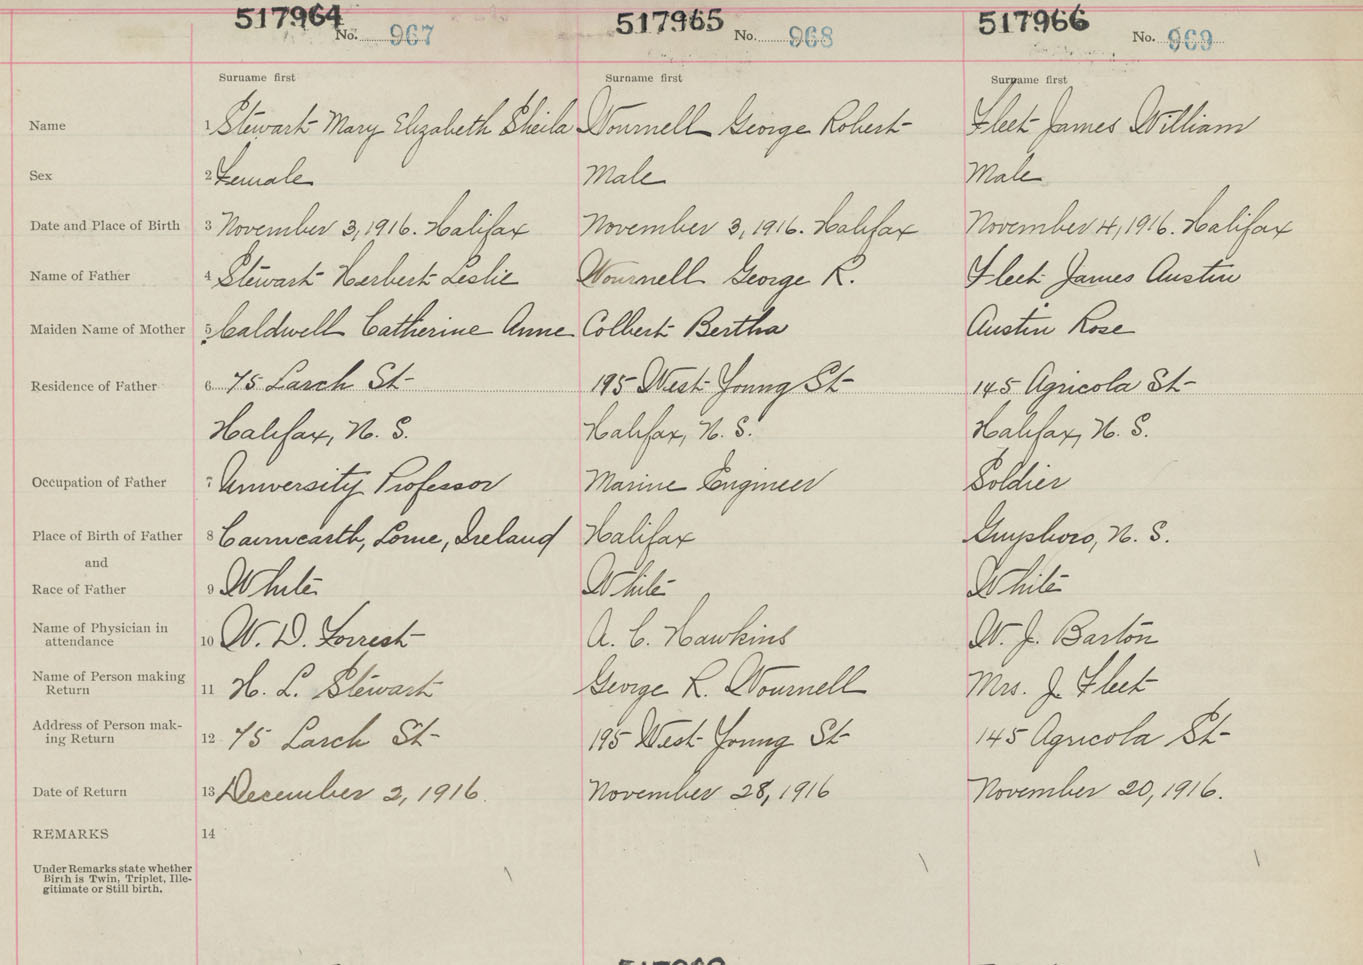 517964 517965 517966
No. 967 No. 968 No. 969
Surname first Surname first Surname first
Name 1 Stewart Mary Elizabeth Sheila Wournell George Robert Fleet James William
Sex 2 Female Male Male
Date and Place of Birth 3 November 3, 1916. Halifax November 3, 1916. Halifax November 4, 1916. Halifax
Name of Father 4 Stewart Herbert Leslie Wournell George R. Fleet James Austin
Maiden Name of Mother 5 Caldwell Catherine Anne Colbert Bertha Austin Rose
Residence of Father 6 75 Larch St 195 West Young St 145 Agricola St
Halifax, N. S. Halifax, N. S. Halifax, N. S.
Occupation of Father 7 University Professor Marine Engineer Soldier
Place of Birth of Father 8 Cairncarth, Lorne, Ireland Halifax Guysboro, N. S.
and
Race of Father 9 White White White
Name of Physician in
attendance 10 W. D. Forrest A. C. Hawkins W. J. Barton
Name of Person making
Return 11 H. L. Stewart George R. Wournell Mrs. J. Fleet
Address of Person mak-
ing Return 12 75 Larch St 195 West Young St 145 Agricola St
Date of Return 13 December 2, 1916. November 28, 1916 November 20, 1916.
REMARKS 14
Under Remarks state whether
Birth is Twin, Triplet, Ille-
gitimate or Still birth.